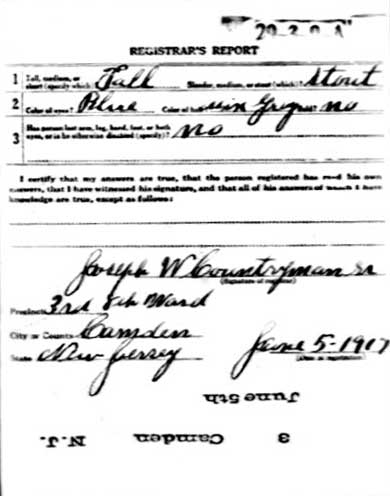 29-2-0-A
REGISTRAR'S REPORT
1 Tall, medium, or short (specify which) Tall Slender, medium, or stout (which)? Stout
2 Color of eyes? Blue Color of hair Gray no
3 Has person lost arm, leg, hand, foot, or both eyes, or is he otherwise disabled (specify)? No
I certify that my answers are true, that the person registered has read his own
answers, that I have witnessed his signature, and that all of his answers of which I have
knowledge are true, except as follows:
Joseph W Countryman Sr
(Signature of registrar)
Precinct 3rd 8th Ward
City or County Camden
State New Jersey June 5-1917
(Date of registration)
June 5th
3 Camden N.J.